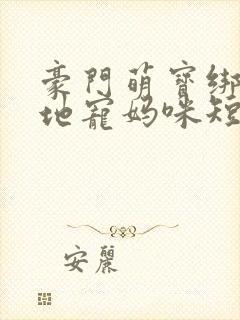 豪門萌寶綁
地寵媽咪短
安麗